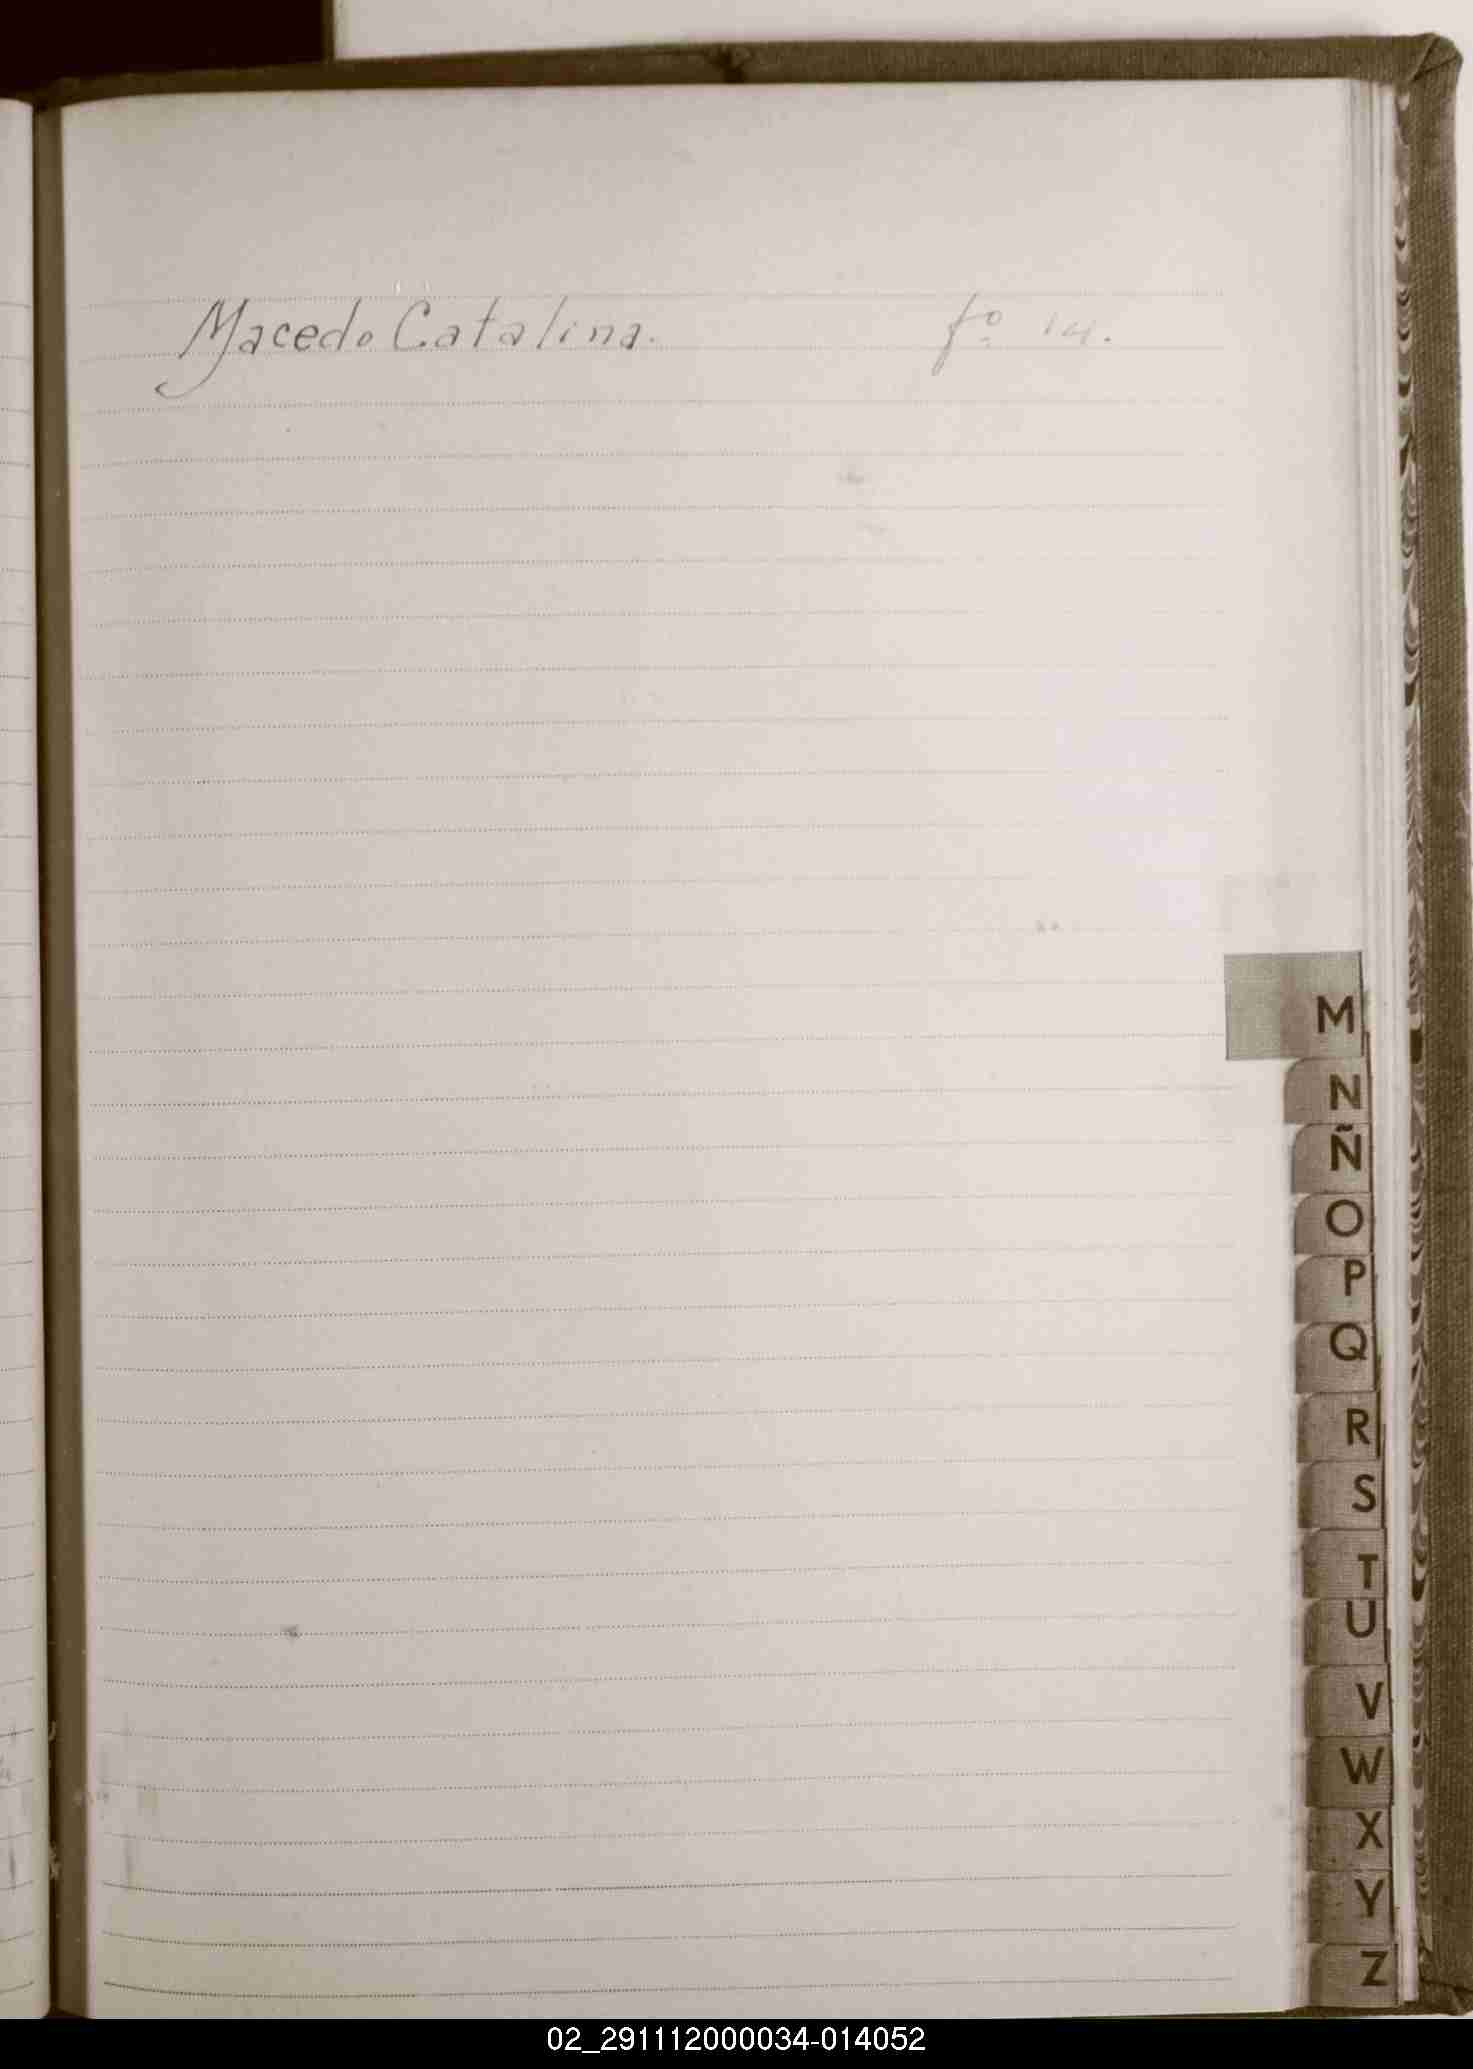 Macedo Catalina. fº 14.
M
N
Ñ
O
P
Q
R
S
T
U
V
W
X
Y
Z
02_291112000034-014052